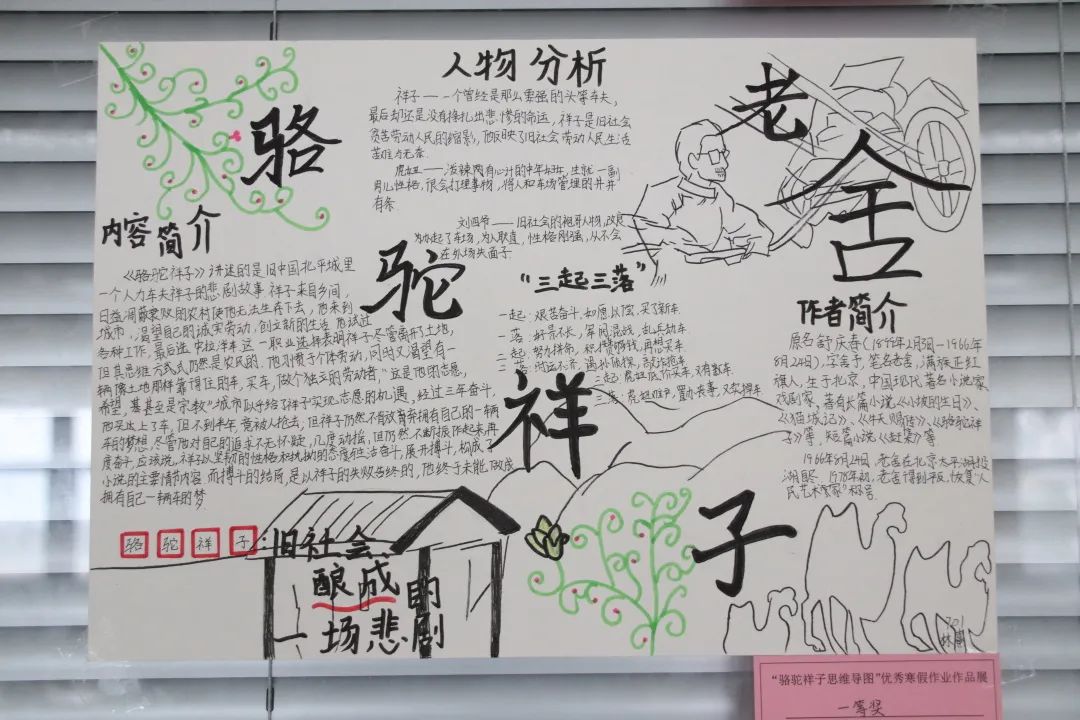 骆
驼
祥
子
老
舍
人物分析
祥子——一个曾经是那么要强的头等车夫，
最后却还是没有挣扎出悲惨的命运，祥子是旧社会
贫苦劳动人民的缩影，他反映了旧社会劳动人民生活
苦难与无奈.
虎妞——泼辣而有心计的中年妇班，生就一副
男儿性格，很会打理事物，将人和车场管理的井井
有条.
刘四爷——旧社会的袍哥人物，改良
办起了车场，为人耿直，性格刚强，从不会
在外场失面子
内容简介
《骆驼祥子》讲述的是旧中国北平城里
一个人力车夫祥子的悲剧故事 祥子来自乡间，
日益凋敝衰败的农村使他无法生存下去，他来到
城市，渴望自己的诚实劳动，创立新的生活 他试过
各种工作，最后选中拉洋车 这一职业选择表明祥子尽管离开土地，
但其思维方式仍然是农民的. 他习惯于个体劳动，同时又渴望有一
辆像土地那样靠得住的车，买车，做个独立的劳动者，"这是他的志愿，
希望，甚至是宗教"城市似乎给了祥子实现志愿的机遇，经过三年奋斗，
他买上了车，但不到半年 竟被人抢去，但祥子仍然不肯放弃拥有自己的一辆
车的梦想，尽管他对自己的追求不无怀疑，几度动摇，但仍然不断振作起来再
度奋斗，应该说，祥子以坚韧的性格和执拗的态度和生活奋斗，展开搏斗，构成了
小说的主要情节内容 而搏斗的结局，是以祥子的失败告终的，他终于未能做成
拥有自己一辆车的梦
"三起三落"
一起：艰苦奋斗，如愿以偿，买了新车.
一落：好景不长，军阀混战，乱兵劫车.
二起：努力拼命，积攒够钱，再想买车
二落：时运不济，遇孙侦探，
三起：虎妞低价买车，又有载车
三落：虎妞难产，置办丧事，又卖掉车
作者简介
原名舒庆春（1899年2月3日-1966年
8月24日），字舍予，笔名老舍，满族正红
旗人，生于北京，中国现代著名小说家
戏剧家，著有长篇小说《小坡的生日》、
《猫城记》、《牛天赐传》、《骆驼祥
子》等，短篇小说《赶集》等
1966年8月24日，老舍在北京太平湖投
湖自尽. 1978年初，老舍得到平反，恢复"人
民艺术家"称号
骆驼祥子：旧社会
酿成的
一场悲剧
701
"骆驼祥子思维导图"优秀寒假作业作品展
一等奖